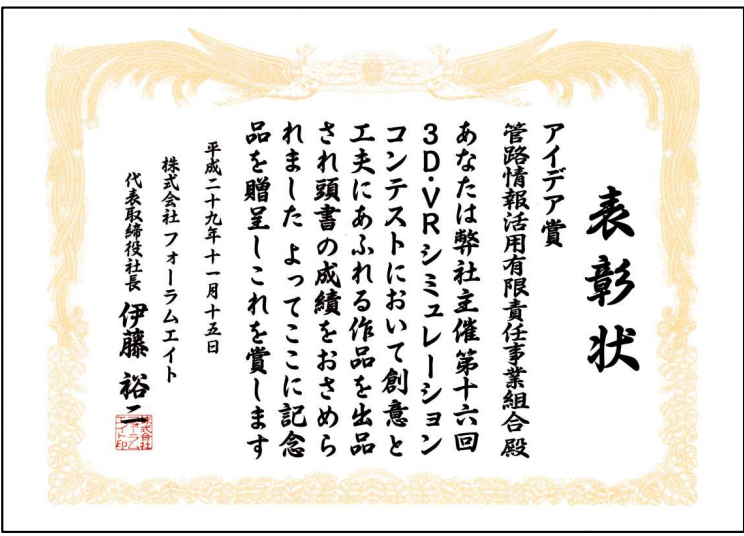 表彰状
アイデア賞
管路情報活用有限責任事業組合殿
あなたは弊社主催第十六回
3D・VRシミュレーション
コンテストにおいて創意と
工夫にあふれる作品を出品
され頭書の成績をおさめら
れました よってここに記念
品を贈呈しこれを賞します
平成二十九年十一月十五日
株式会社 フォーラムエイト
代表取締役社長 伊藤 裕二
株式会社
フォーラム
エイト印